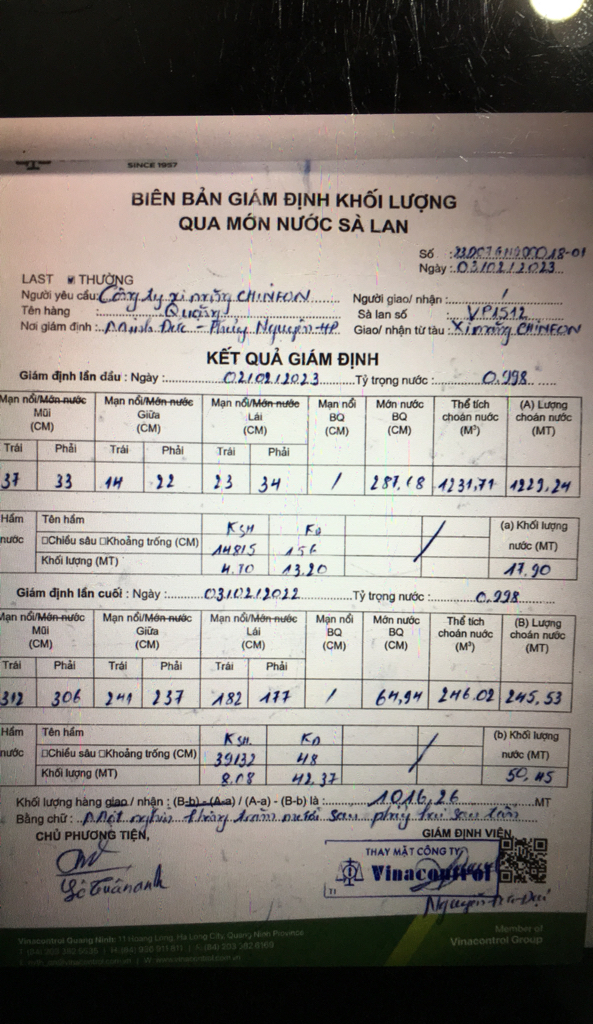 SINCE 1957
BIÊN BẢN GIÁM ĐỊNH KHỐI LƯỢNG
QUA MÓN NƯỚC SÀ LAN
Số :
Ngày : 03/02/2023
LAST THƯỜNG
Người yêu cầu: Công ty xi măng CHINFON Người giao/ nhận : /
Tên hàng : Quặng Sà lan số : VP1512
Nơi giám định : Minh Đức - Thủy Nguyên - HP Giao/ nhận từ tàu : Xi măng CHINFON
KẾT QUẢ GIÁM ĐỊNH
Giám định lần đầu : Ngày : 02/02/2023 Tỷ trọng nước : 0.998
Mạn nổi/Món nước Mạn nổi/Món nước Mạn nổi/Món nước Mạn nổi Món nước Thể tích (A) Lượng
Mũi Giữa Lái BQ BQ choán nước choán nước
(CM) (CM) (CM) (CM) (CM) (M³) (MT)
Trái Phải Trái Phải Trái Phải
37 33 14 22 23 34 / 287,68 1231,71 1229,24
Hầm Tên hầm KSH KĐ (a) Khối lượng
nước □Chiều sâu □Khoảng trống (CM) 156 nước (MT)
Khối lượng (MT) 4.70 13.20 17.90
Giám định lần cuối : Ngày : 03/02/2022 Tỷ trọng nước : 0.998
Mạn nổi/Món nước Mạn nổi/Món nước Mạn nổi/Món nước Mạn nổi Món nước Thể tích (B) Lượng
Mũi Giữa Lái BQ BQ choán nước choán nước
(CM) (CM) (CM) (CM) (CM) (M³) (MT)
Trái Phải Trái Phải Trái Phải
312 306 241 237 182 177 / 64,94 246.02 245,53
Hầm Tên hầm KSH KĐ (b) Khối lượng
nước □Chiều sâu □Khoảng trống (CM) 48 nước (MT)
Khối lượng (MT) 8.08 42.37 50,45
Khối lượng hàng giao / nhận : (B-b) - (A-a) / (A-a) - (B-b) là : 1016,26 MT
Bằng chữ : Một nghìn không trăm mười sáu phẩy hai sáu tấn
CHỦ PHƯƠNG TIỆN, GIÁM ĐỊNH VIÊN,
THAY MẶT CÔNG TY
Vinacontrol
Lê Tuấn anh
Nguyễn
Vinacontrol Quang Ninh: 11 Hoang Long, Ha Long City, Quang Ninh Province
Member of
Vinacontrol Group